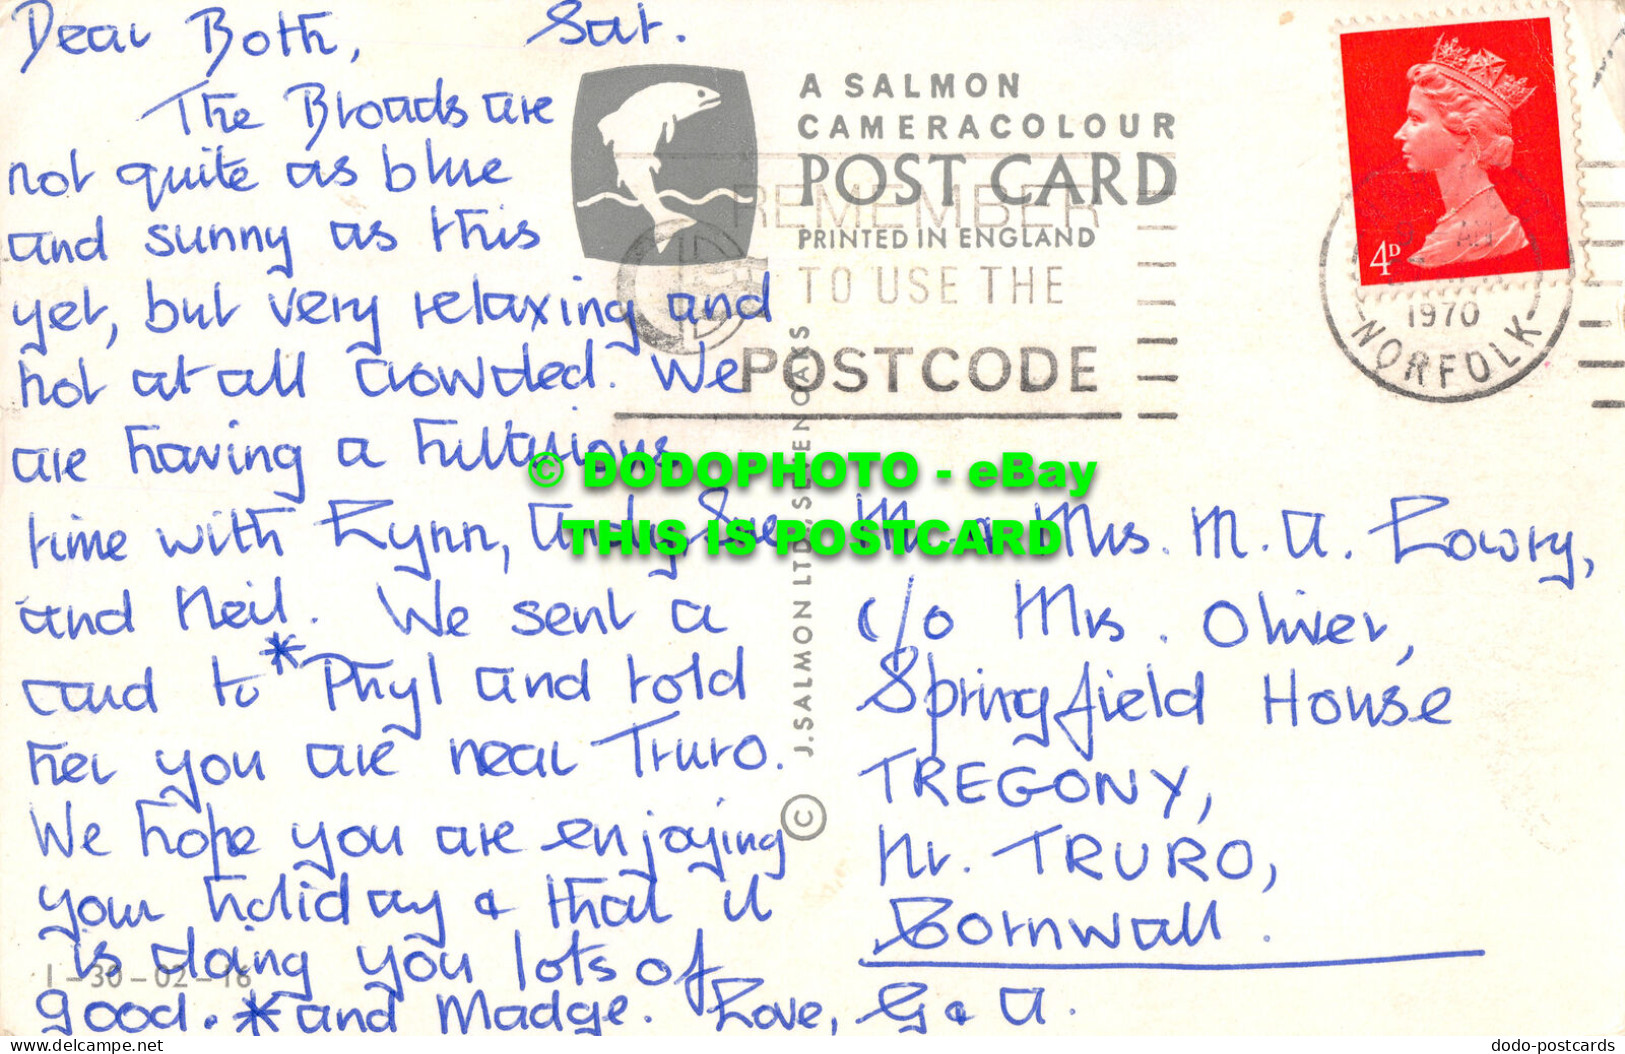 Dear Both, Sat.
The Broads are
not quite as blue
and sunny as this
yet, but very relaxing and
not at all crowded. We
are having a hilarious
time with Lynn, Andy, Sue
and Neil. We sent a
card to * Phyl and told
her you are near Truro.
We hope you are enjoying
your holiday & that it
is doing you lots of
good. * and Madge. Love, G & A.
A SALMON
CAMERACOLOUR
POST CARD
PRINTED IN ENGLAND
REMEMBER
TO USE THE
POSTCODE
4D
1970
NORFOLK
J. SALMON LTD., SEVENOAKS ©
© DODOPHOTO - eBay
THIS IS POSTCARD
Mr. & Mrs. M. A. Lowry,
c/o Mrs. Oliver,
Springfield House
TREGONY,
Nr. TRURO,
Cornwall.
1-30-02-16
delcampe.net
dodo-postcards